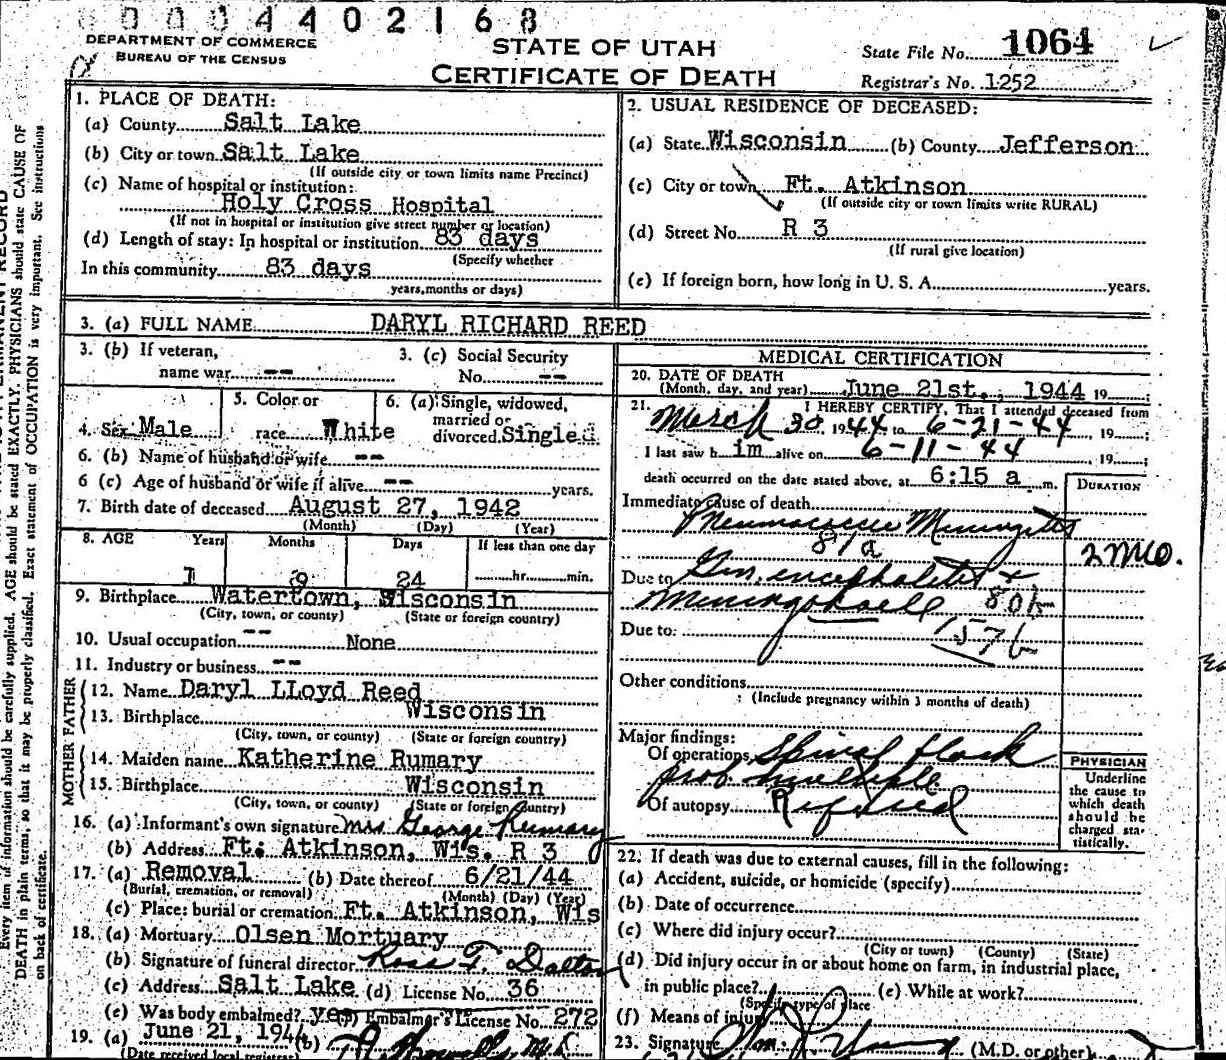 0 0 0 4 4 0 2 1 6 8
DEPARTMENT OF COMMERCE
BUREAU OF THE CENSUS
STATE OF UTAH
CERTIFICATE OF DEATH
State File No. 1064
Registrar's No. 1252
1. PLACE OF DEATH:
(a) County Salt Lake
(b) City or town Salt Lake
(If outside city or town limits name Precinct)
(c) Name of hospital or institution:
Holy Cross Hospital
(If not in hospital or institution give street number or location)
(d) Length of stay: In hospital or institution 83 days
(Specify whether
In this community 83 days
years, months or days)
2. USUAL RESIDENCE OF DECEASED:
(a) State Wisconsin (b) County Jefferson
(c) City or town Ft. Atkinson
(If outside city or town limits write RURAL)
(d) Street No. R 3
(If rural give location)
(e) If foreign born, how long in U. S. A. years.
3. (a) FULL NAME DARYL RICHARD REED
3. (b) If veteran,
name war --
3. (c) Social Security
No. --
4. Sex Male
5. Color or
race White
6. (a) Single, widowed,
married or
divorced Singled
6. (b) Name of husband or wife --
6 (c) Age of husband or wife if alive -- years.
7. Birth date of deceased August 27, 1942
(Month) (Day) (Year)
8. AGE Years Months Days If less than one day
1 9 24 hr. min.
9. Birthplace Watertown, Wisconsin
(City, town, or county) (State or foreign country)
10. Usual occupation -- None
11. Industry or business --
FATHER
12. Name Daryl LLoyd Reed
13. Birthplace Wisconsin
(City, town, or county) (State or foreign country)
MOTHER
14. Maiden name Katherine Rumary
15. Birthplace Wisconsin
(City, town, or county) (State or foreign country)
16. (a) Informant's own signature Mrs George Rumary
(b) Address Ft. Atkinson, Wis. R 3
17. (a) Removal (b) Date thereof 6/21/44
(Burial, cremation, or removal) (Month) (Day) (Year)
(c) Place: burial or cremation Ft. Atkinson, Wis
18. (a) Mortuary Olsen Mortuary
(b) Signature of funeral director Ross F. Dalton
(c) Address Salt Lake (d) License No. 36
(e) Was body embalmed? yes (f) Embalmer's License No. 272
19. (a) June 21, 1944 (b)
(Date received local registrar)
MEDICAL CERTIFICATION
20. DATE OF DEATH
(Month, day, and year) June 21st., 1944 19
21. I HEREBY CERTIFY, That I attended deceased from
March 30, 1944 to 6-21-44, 19
I last saw him alive on 6-11-44 19
death occurred on the date stated above, at 6:15 a m.
DURATION
Immediate cause of death
Pneumococcic Miningitis
81a
2 mo.
Due to Gen. encephalitis +
80b
Due to: 57b
Other conditions
(Include pregnancy within 3 months of death)
Major findings:
Of operations Spinal block
prob multiple
Of autopsy Refused
PHYSICIAN
Underline
the cause to
which death
should be
charged sta-
tistically.
22. If death was due to external causes, fill in the following:
(a) Accident, suicide, or homicide (specify)
(b) Date of occurrence
(c) Where did injury occur?
(City or town) (County) (State)
(d) Did injury occur in or about home on farm, in industrial place,
in public place? (e) While at work?
(Specify type of place
(f) Means of injury
23. Signature Young (M.D. or other)
Every item of information should be carefully supplied. AGE should be stated EXACTLY. PHYSICIANS should state CAUSE OF
DEATH in plain terms, so that it may be properly classified. Exact statement of OCCUPATION is very important. See instructions
on back of certificate.